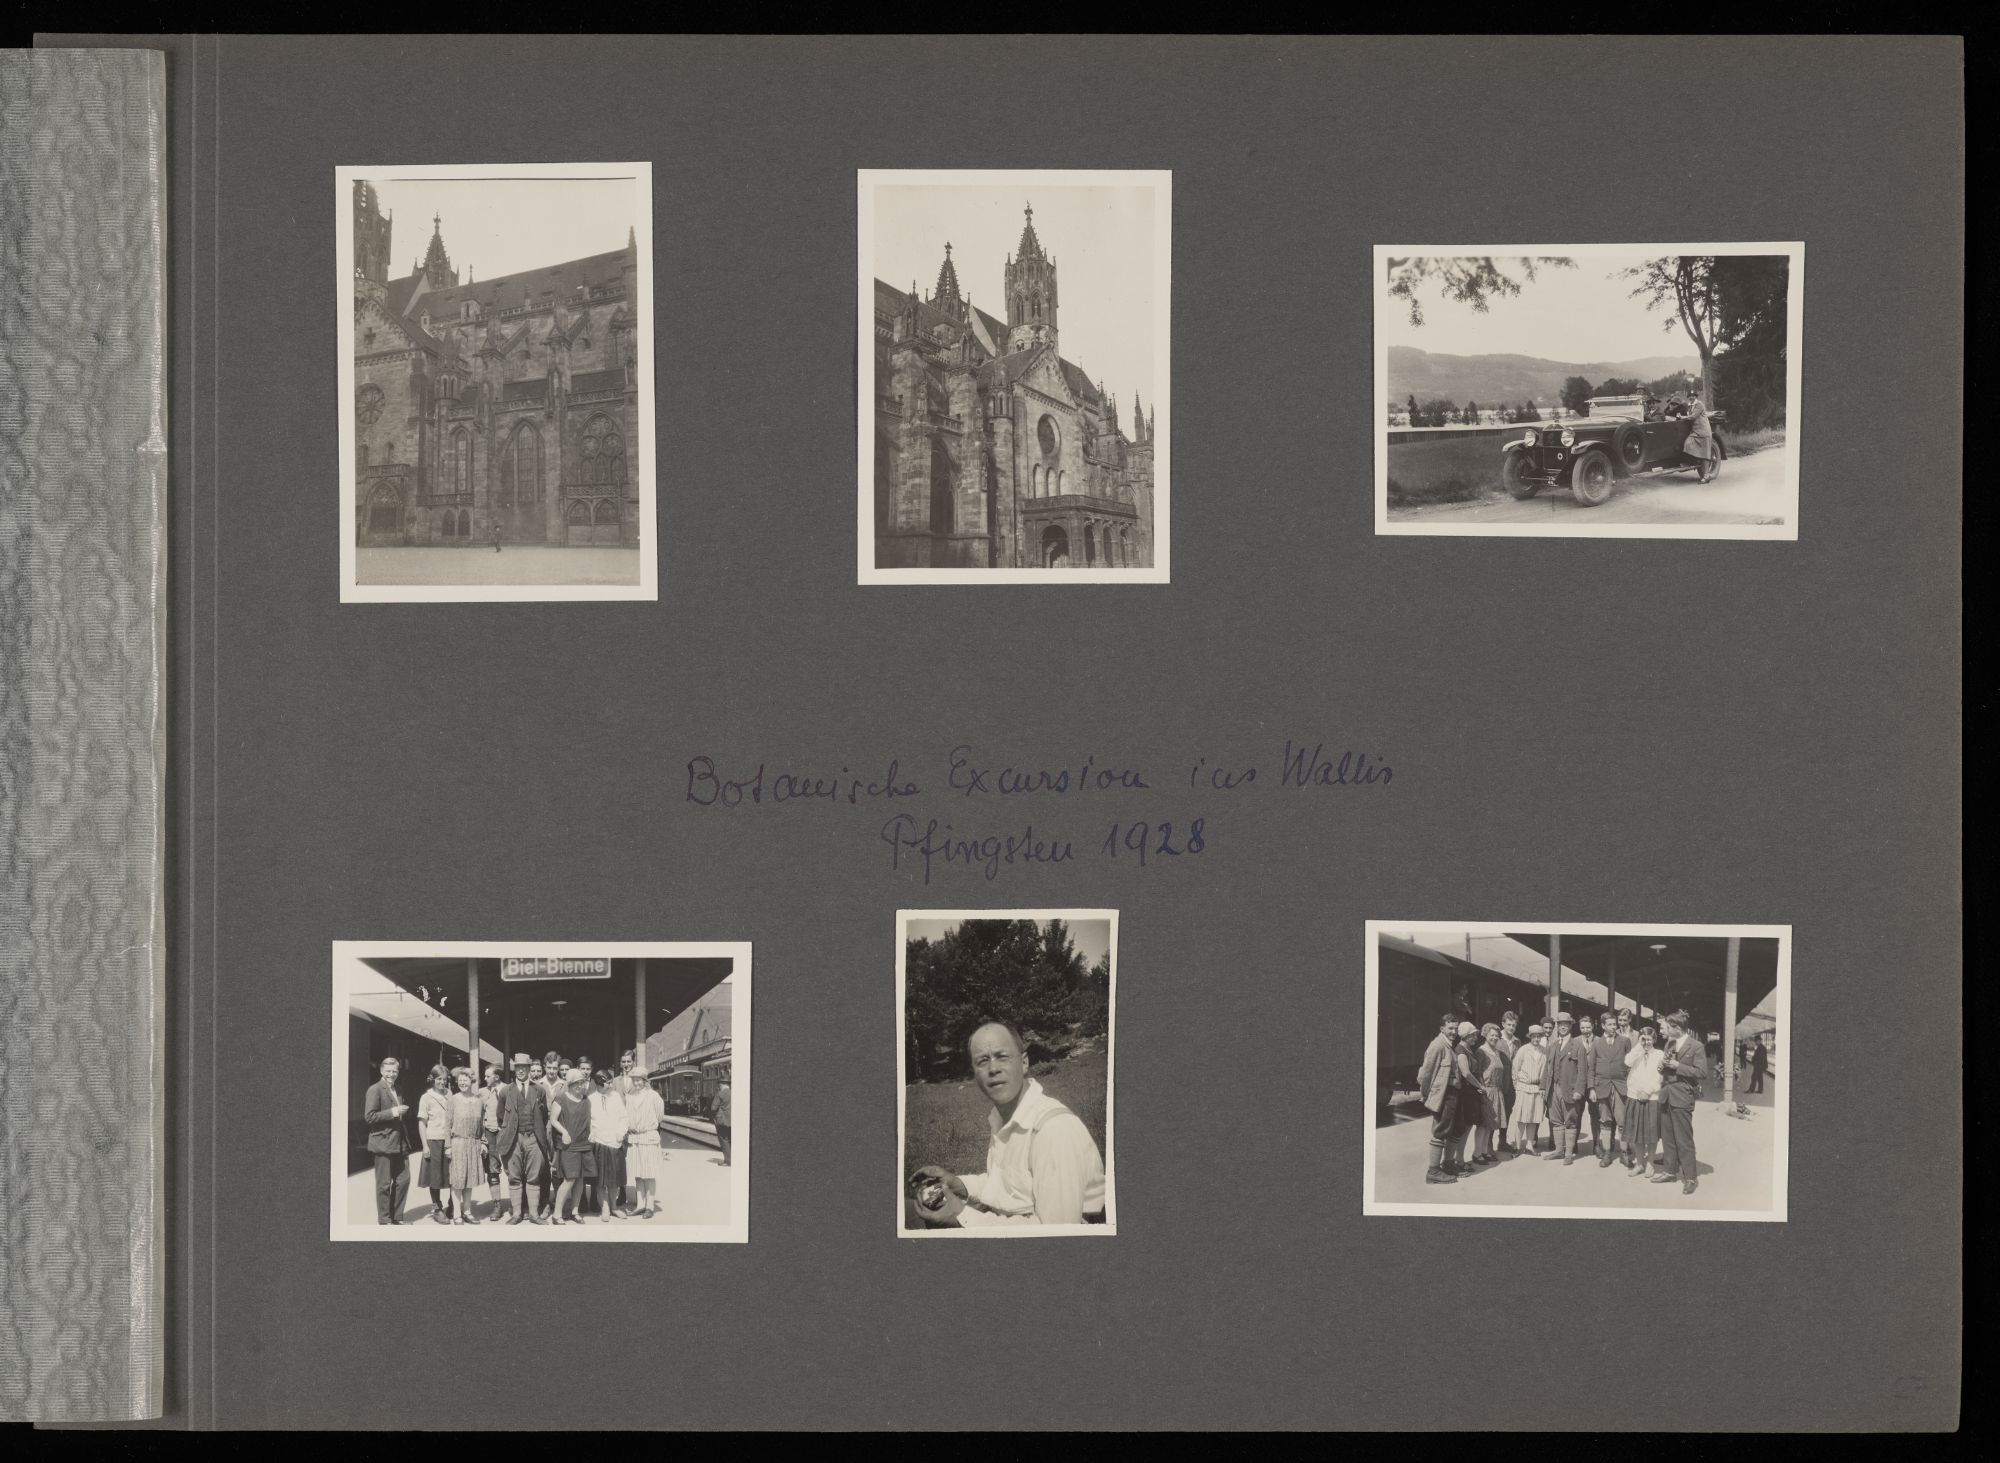 Botanische Excursion ins Wallis
Pfingsten 1928
Biel-Bienne